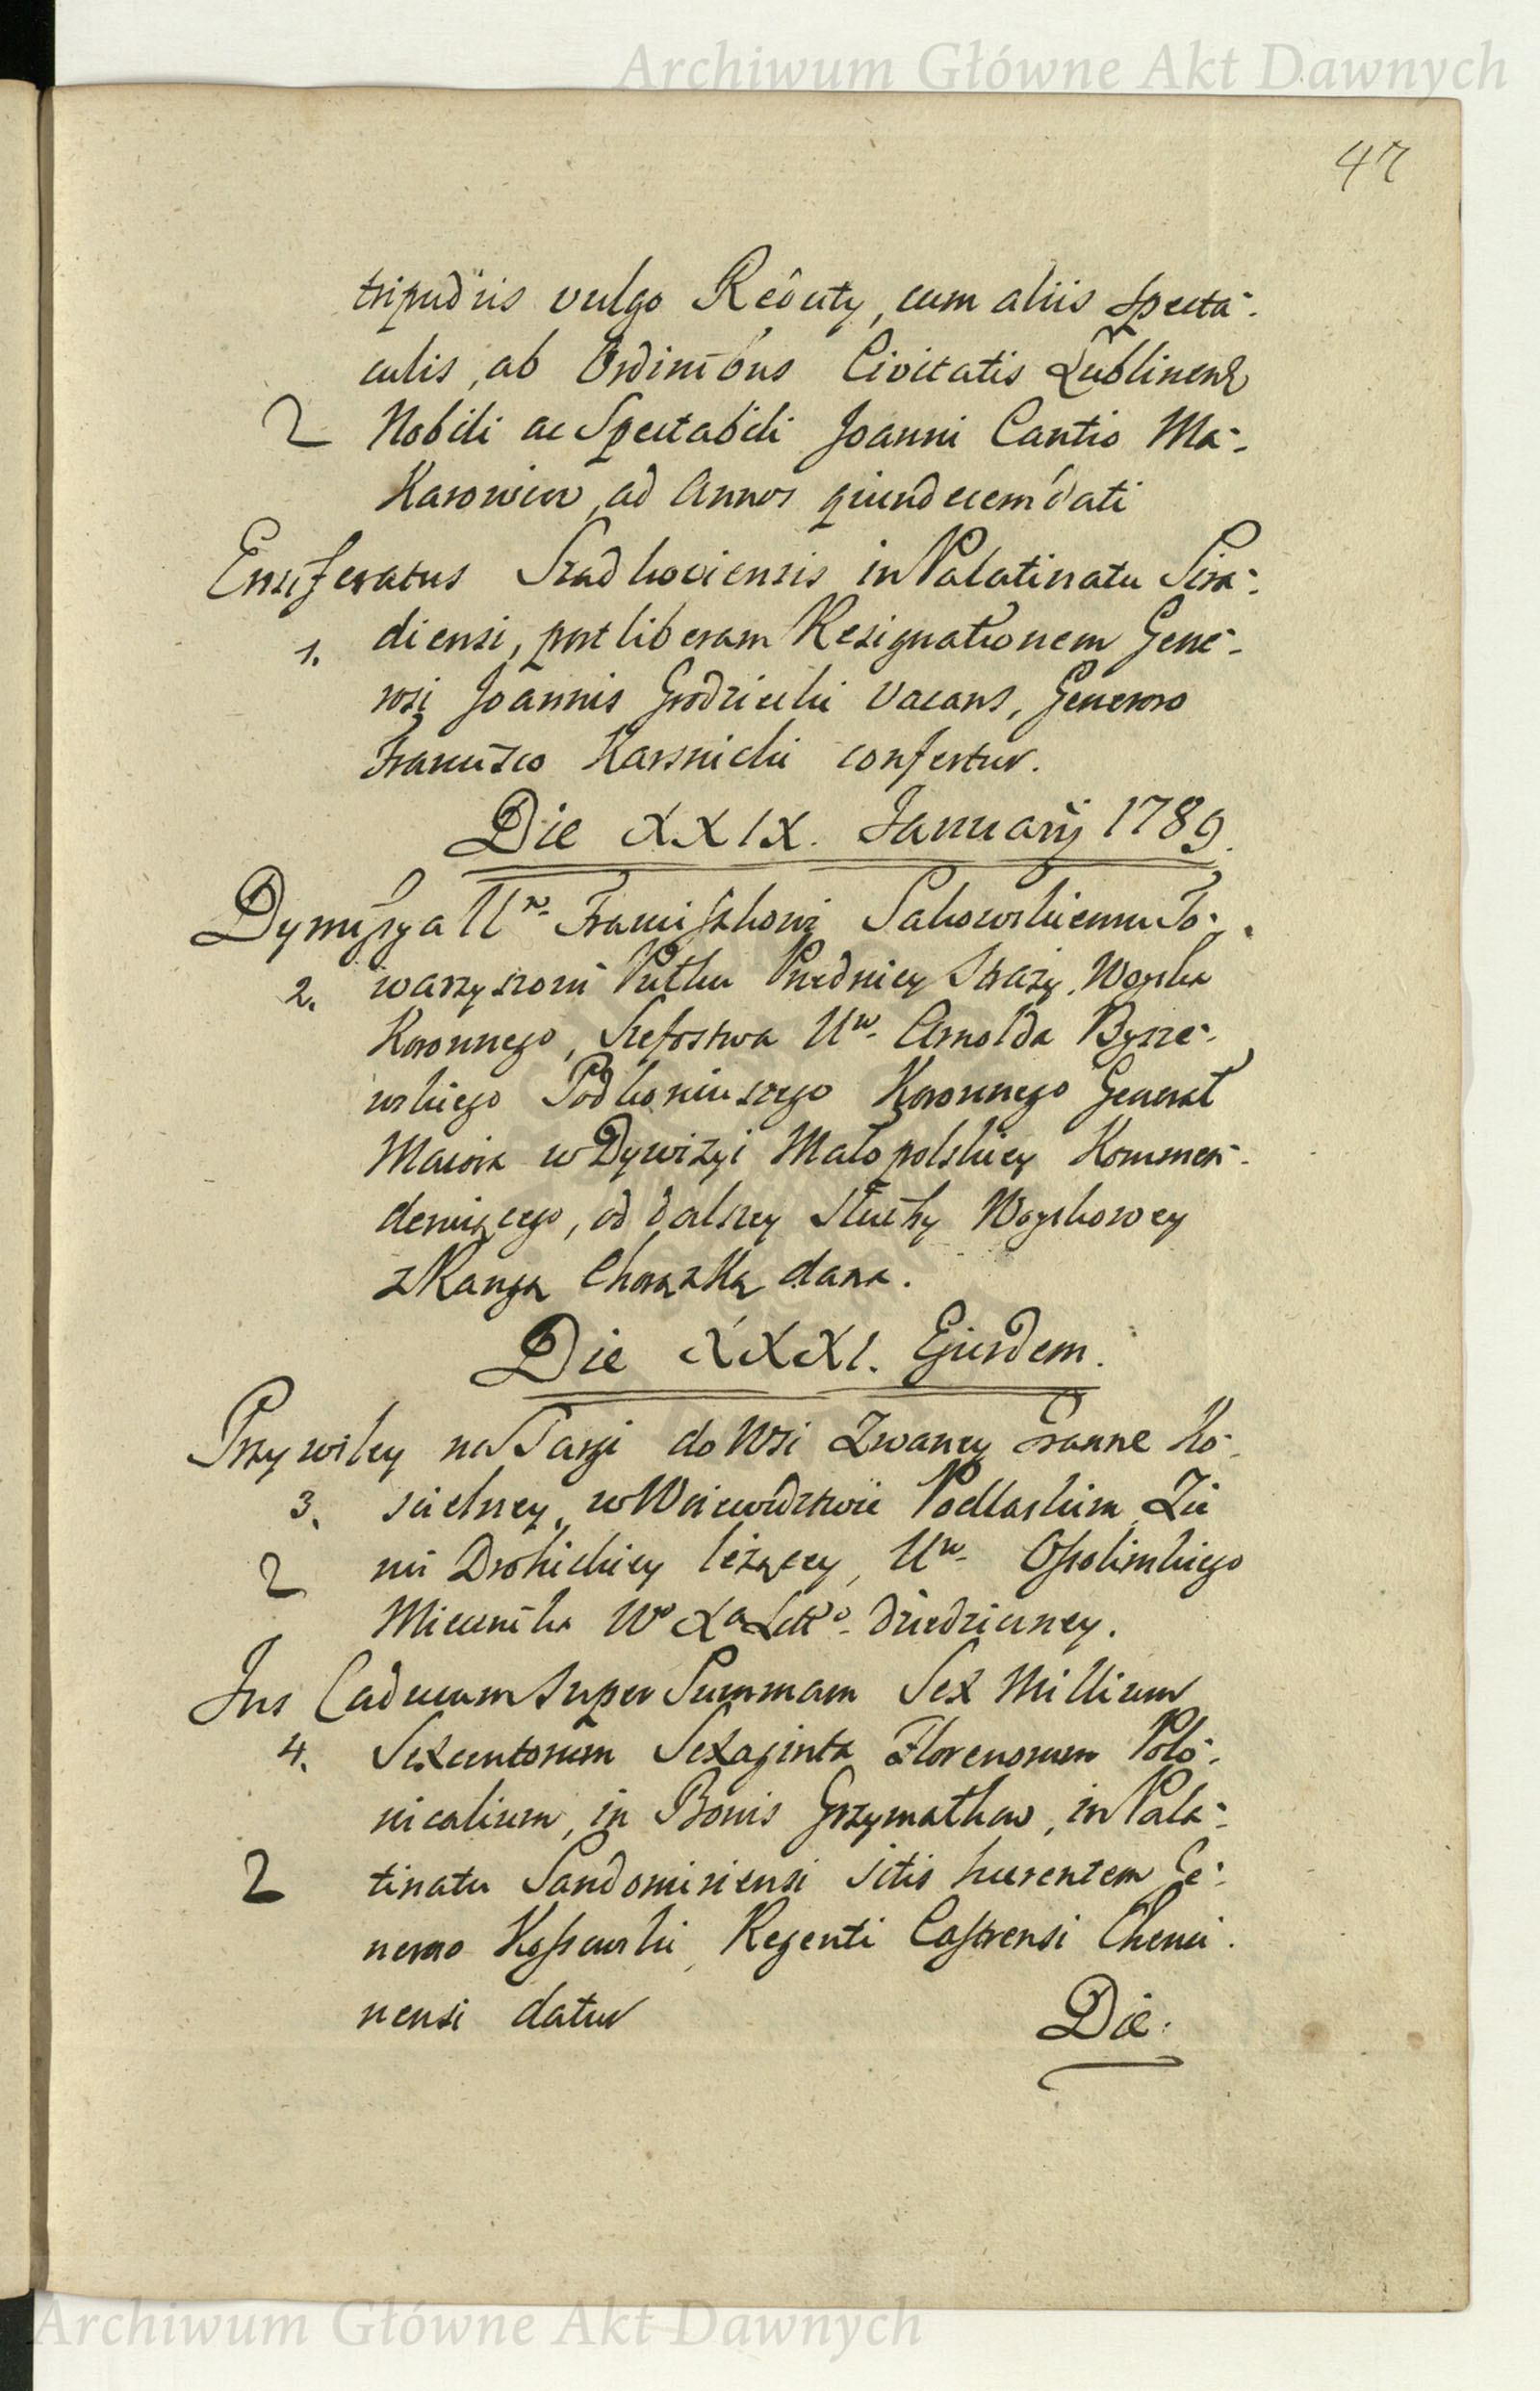 Archiwum Główne Akt Dawnych
47
tripudiis vulgo Reduty, cum aliis specta-
culis, ab Ordinibus Civitatis Lublinens
2 Nobili ac Spectabili Joanni Cantio Ma-
karowicz, ad Annos quindecem dati
Ensiferatus Szadkoviensis in Palatinatu Sira-
1. diensi, post liberam Resignationem Gene-
rosi Joannis Grodzicki vacans, Generoso
Francisco Karsnicki confertur.
Die XXIX. Januarij 1789.
Dymissya Ur. Franciszkowi Sakowskiemu To-
2. warzyszowi Pułku Przedniey Straży Woyska
Koronnego, Szefostwa Ur. Arnolda Bysze-
wskiego Podkoniuszego Koronnego Generał
Maiora w Dywizyi Małopolskiey Kommen-
deruiącego, od dalszey służby Woyskowey
z Rangą Chorążką dana.
Die XXXI. Ejusdem.
Przywiley na Targi do Wsi Zwaney Franne Ko-
3.ścielney, w Woiewództwie Podlaskim Zie
2 mi Drohickiey leżącey, Ur. Ossolinskiego
Miecznika Wo Xa Litto dziedziczney.
Jus Caducum super Summam Sex Millium
4. Sexcentorum Sexaginta Florenorum Polo-
nicalium, in Bonis Grzymałkow, in Pala-
2 tinatu Sandomiriensi sitis haerentem Ge-
neroso Kossowski, Regenti Castrensi Chenci-
nensi datur
Die:
Archiwum Główne Akt Dawnych